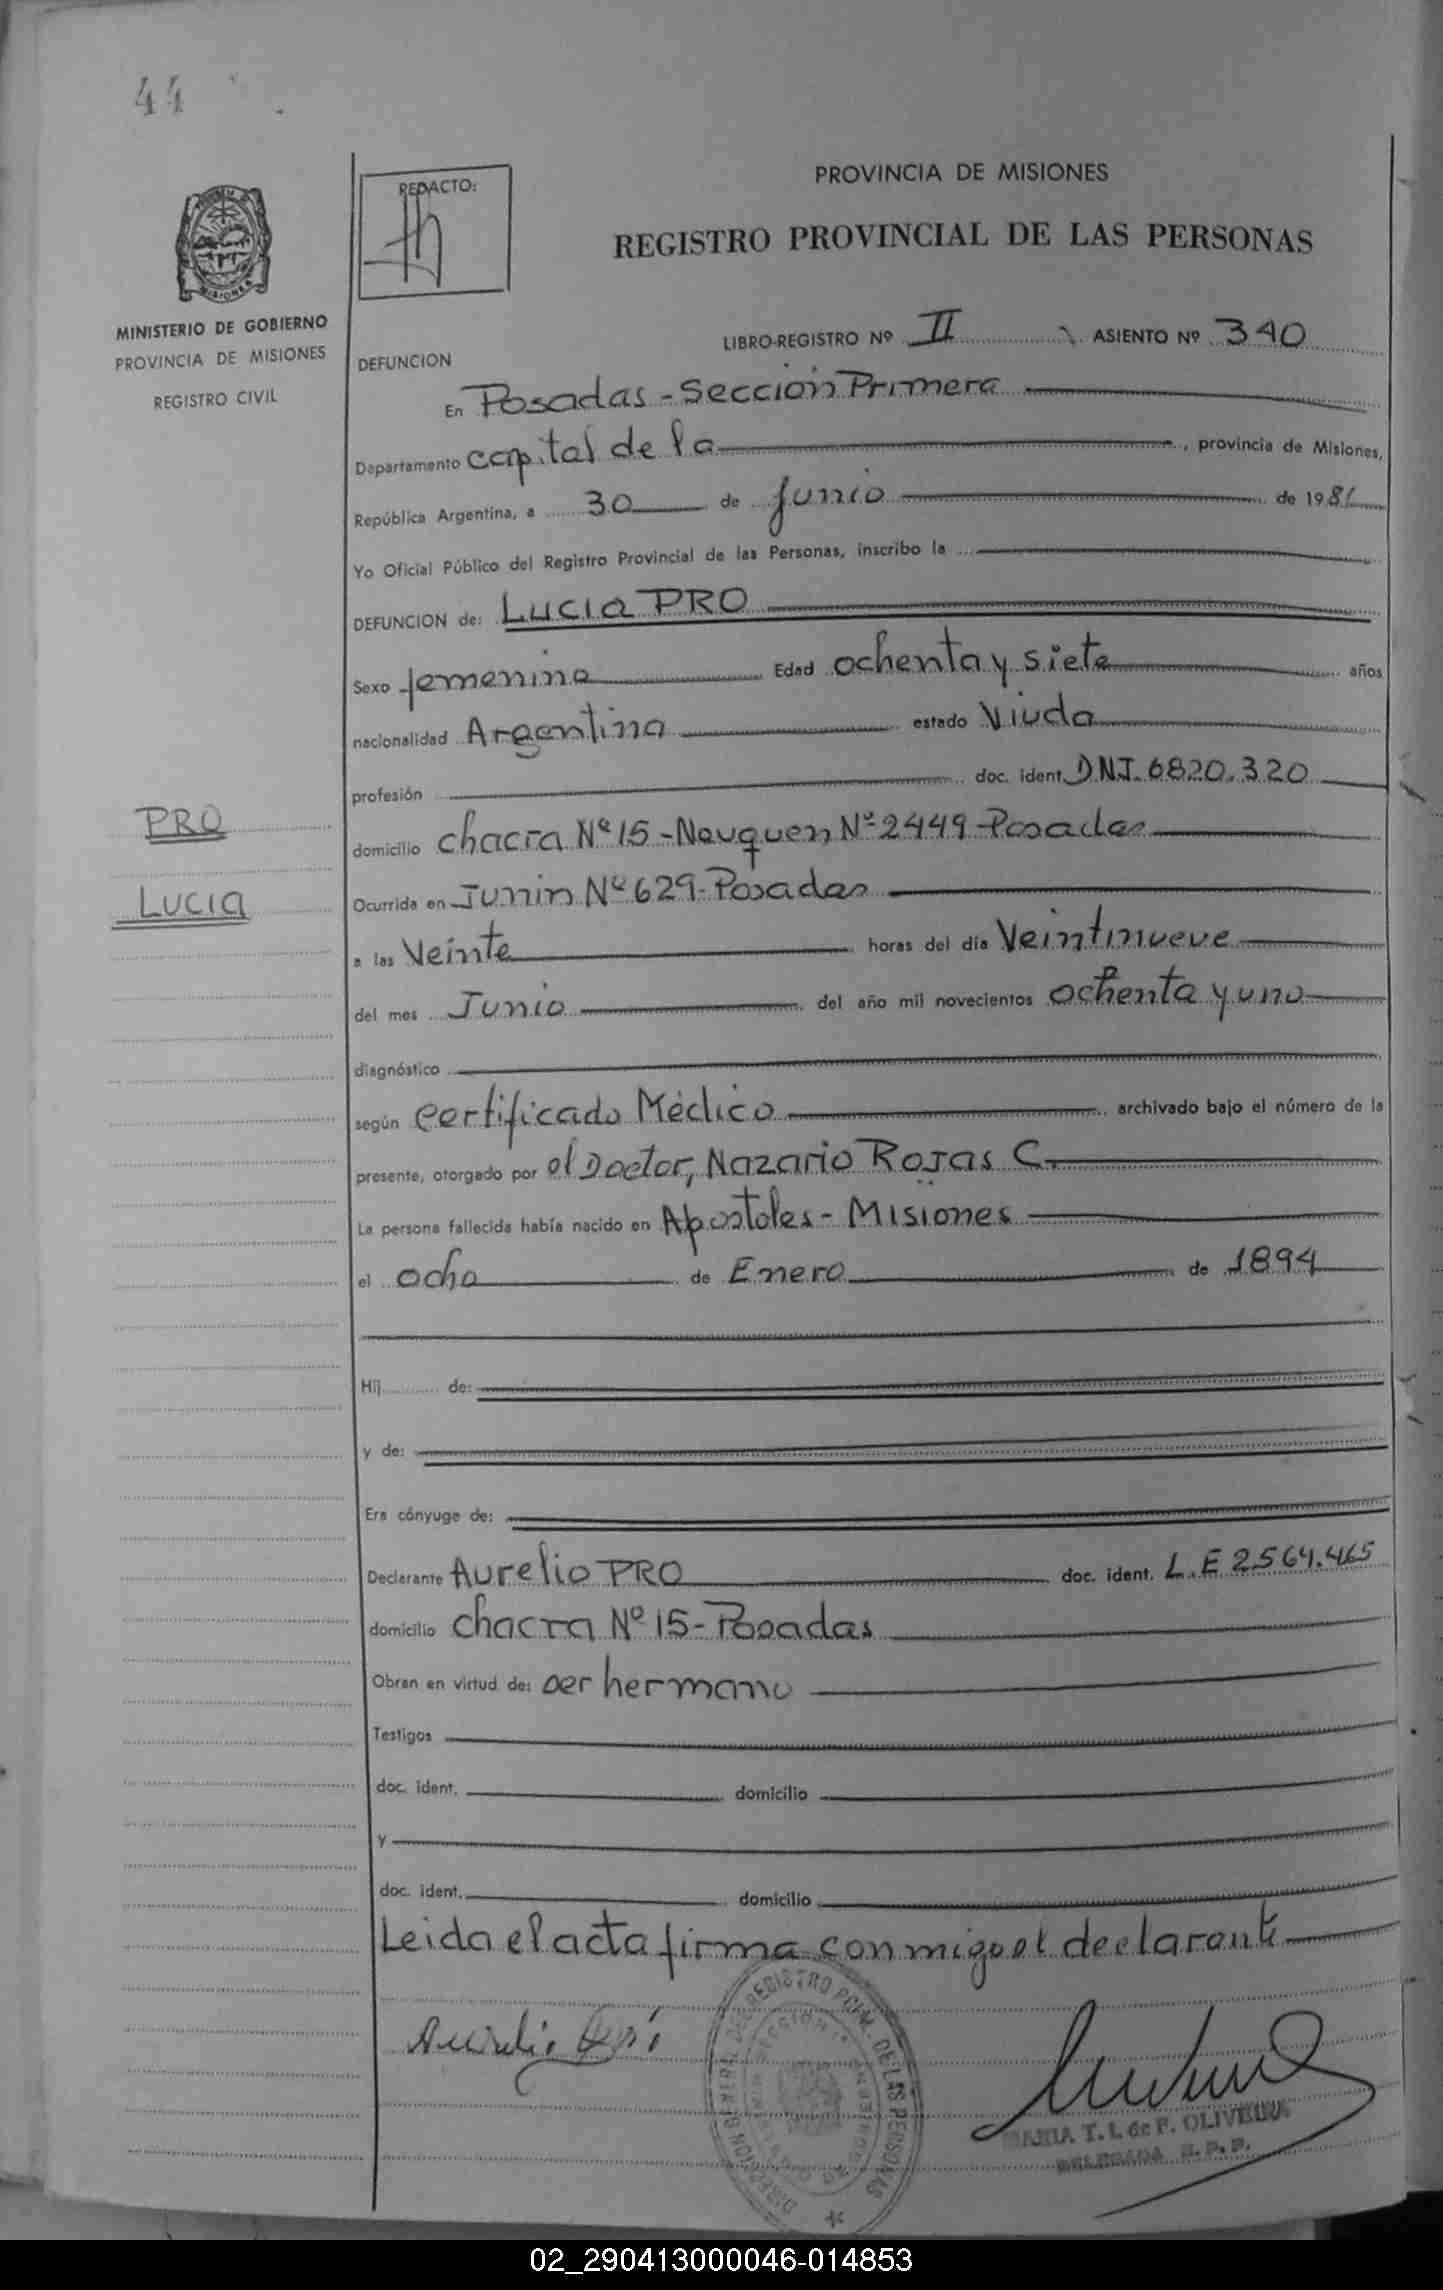 44
REDACTO:
PROVINCIA DE MISIONES
REGISTRO PROVINCIAL DE LAS PERSONAS
MISIONES
MINISTERIO DE GOBIERNO
PROVINCIA DE MISIONES
REGISTRO CIVIL
LIBRO-REGISTRO Nº II ASIENTO Nº 340
DEFUNCION
En Posadas - Sección Primera
Departamento capital de la, provincia de Misiones,
República Argentina, a 30 de Junio de 1981
Yo Oficial Público del Registro Provincial de las Personas, inscribo la
DEFUNCION de: Lucia PRO
Sexo femenino Edad ochenta y siete años
nacionalidad Argentina estado Viuda
profesión doc. ident. D.N.I. 6820.320
PRO
domicilio chacra Nº 15 - Neuquen Nº 2449 - Posadas
LUCIA
Ocurrida en Junin Nº 629 - Posadas
a las Veinte horas del día Veintinueve
del mes Junio del año mil novecientos ochenta y uno
diagnóstico
según Certificado Médico archivado bajo el número de la
presente, otorgado por el Doctor, Nazario Rojas C.
La persona fallecida había nacido en Apostoles - Misiones
el ocho de Enero de 1894
Hij de:
y de:
Era cónyuge de:
Declarante Aurelio PRO doc. ident. L.E 2564.465
domicilio chacra Nº 15 - Posadas
Obran en virtud de: ser hermano
Testigos
doc. ident. domicilio
y
doc. ident. domicilio
Leida el acta firma conmigo el declarante
Aurelio
DIRECCION GENERAL DEL REGISTRO PCIAL. DE LAS PERSONAS
SECCION 1ª
MARIA T. I. de F. OLIVEIRA
DELEGADA R. P. P.
02_290413000046-014853